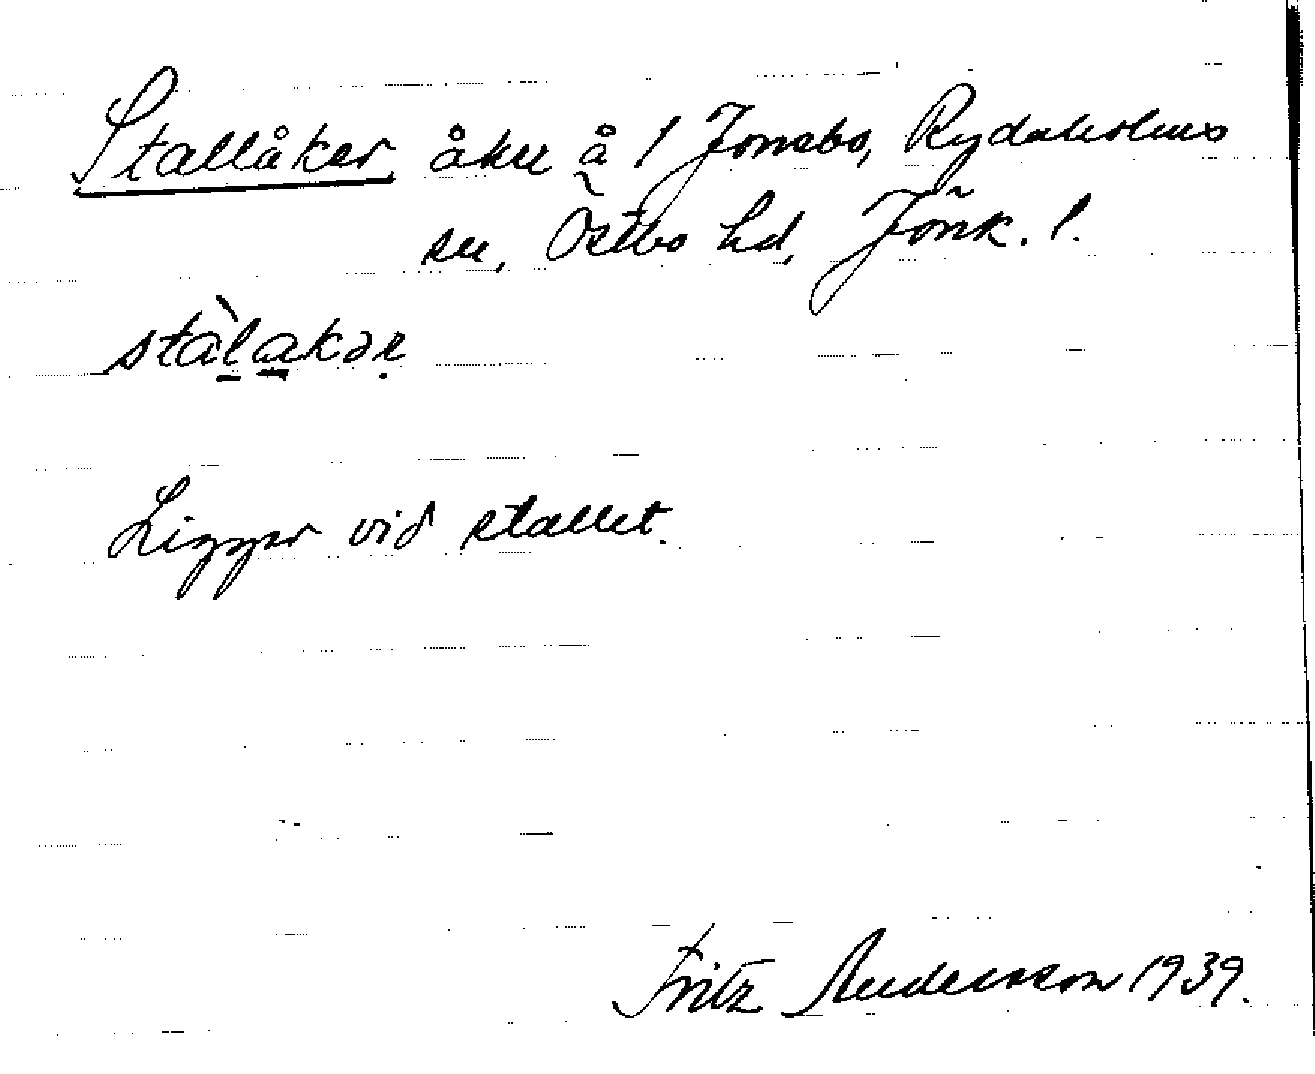 Stallåker, åker å 1 Jonsbo, Rydaholms
sn, Östbo hd, Jönk. l.
stàlakər
Ligger vid stallet.
Fritz Andersson 1939.